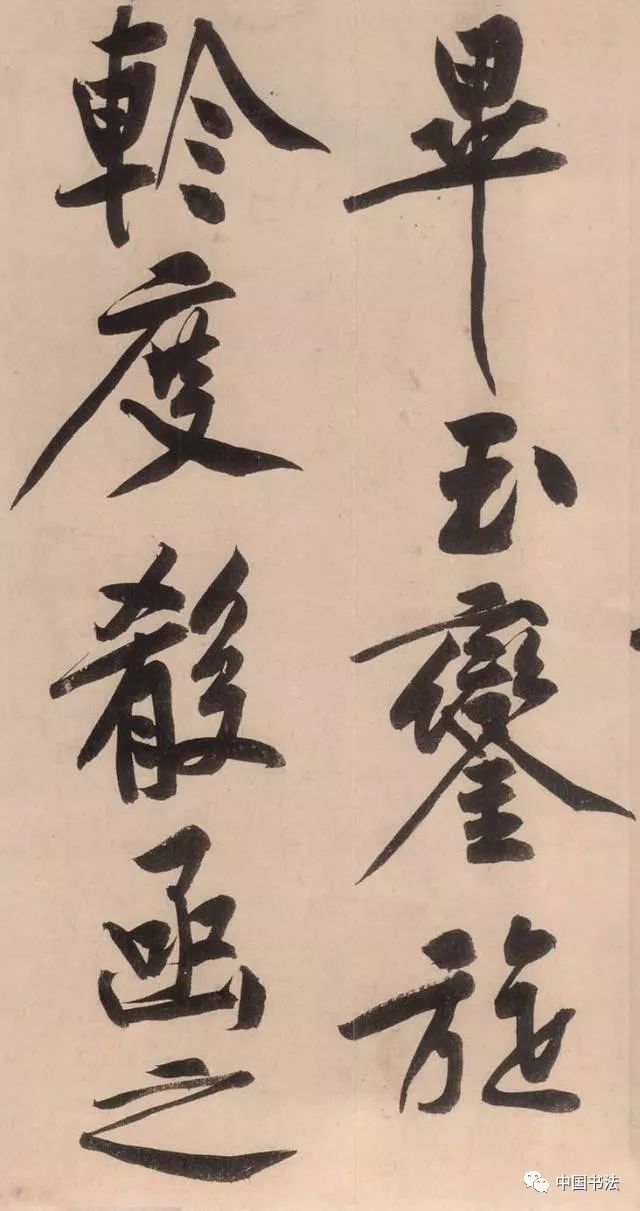 畢玉鑾旋
軫度殽函之
中国书法